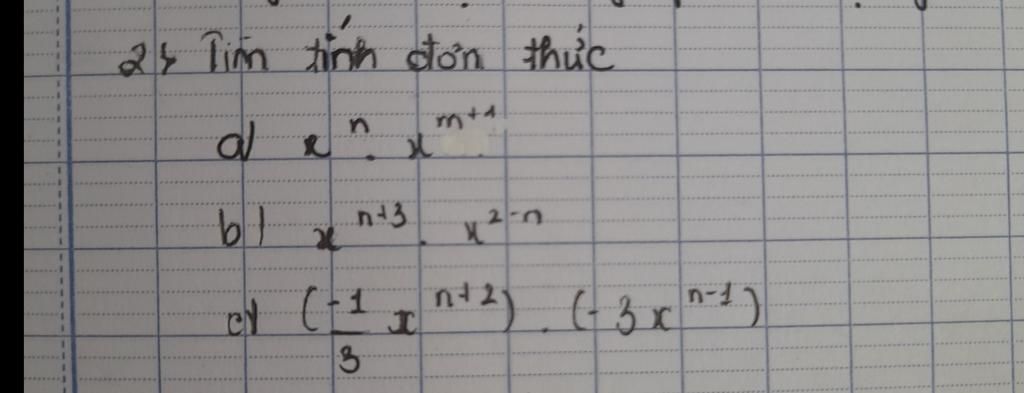 2) Tìm tính đơn thức
a) x^n . x^{m+1}
b) x^{n+3} . x^{2-n}
c) (\frac{-1}{3} x^{n+2}) . (-3x^{n-1})